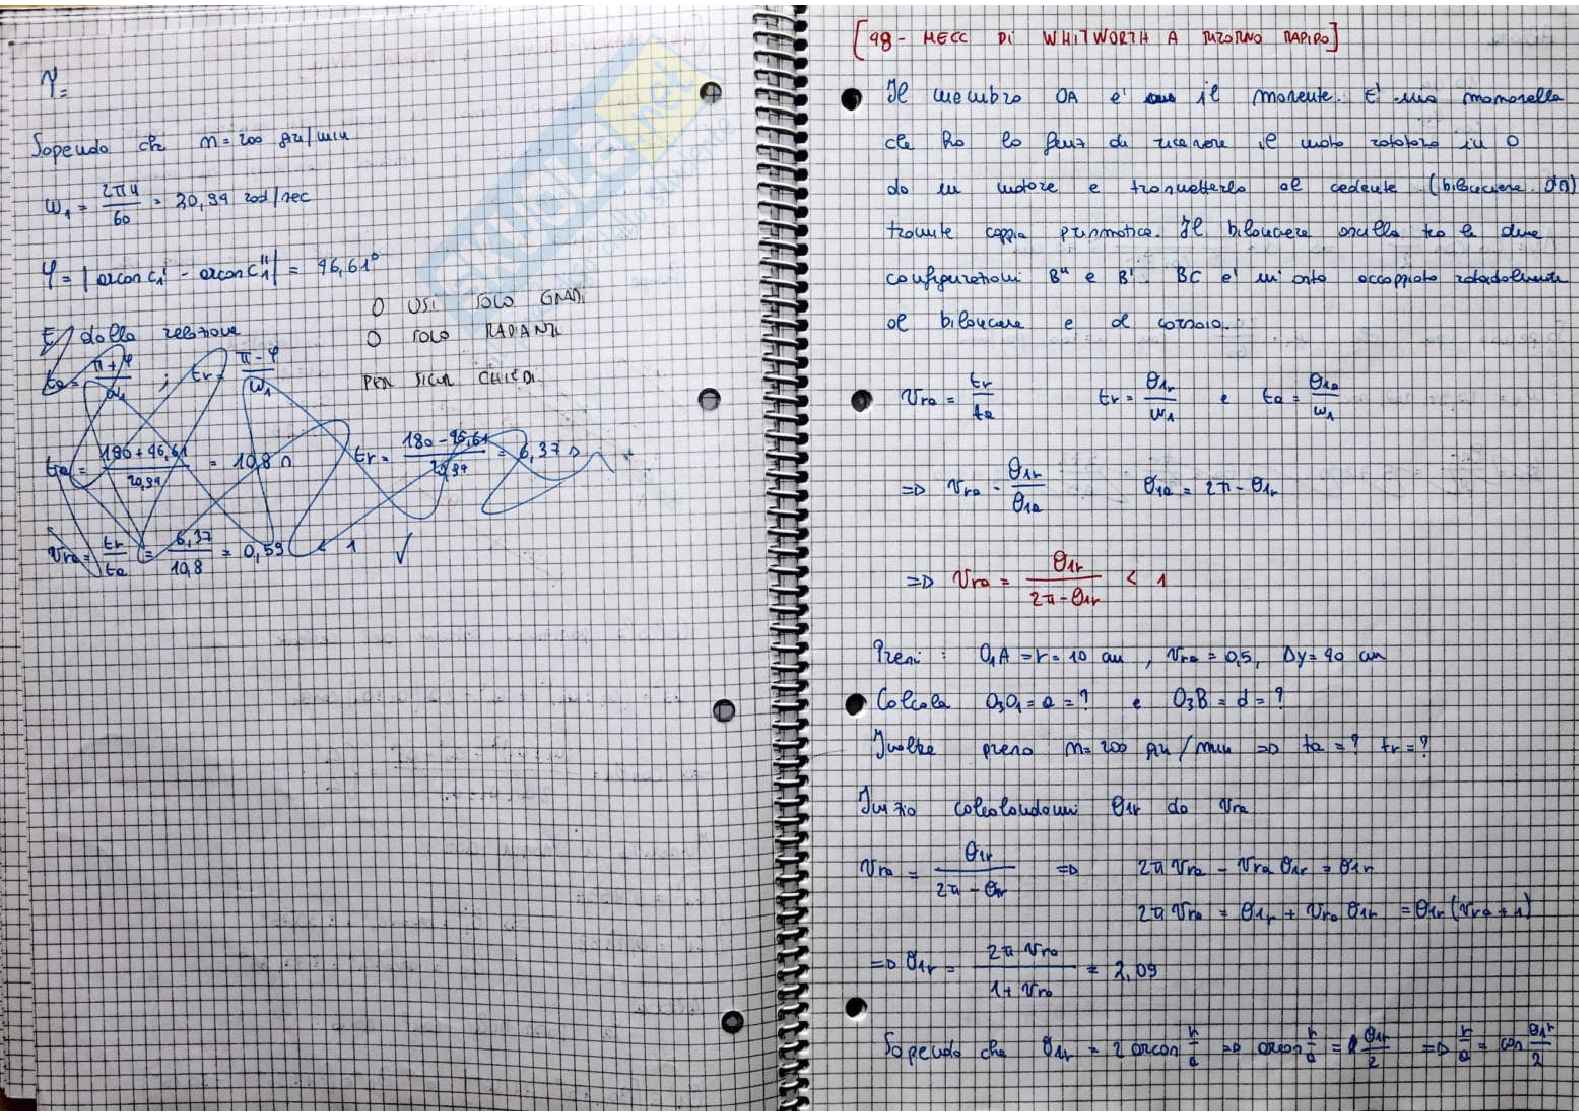 φ=
Sapendo che n= 200 giri/min
ω₁ = 2πn/60 = 20,94 rad/sec
φ = |arcos c₁' - arcos c₁''| = 46,61°
O USI SOLO GRADI
E dalla relazione
O SOLO RADIANTI
ta= π+φ/ω₁ ; tr= π-φ/ω₁
PER SICUR CHIEDI
ta= 180+46,61/20,94 = 10,8 s tr= 180-46,61/20,94 = 6,37 s
νra= tr/ta = 6,37/10,8 = 0,59 < 1 √
[48- MECC DI WHITWORTH A RITORNO RAPIDO]
Il membro OA e' il movente. E' una manovella
che ha la funz di ricevere il moto rotatorio in O
da un motore e trasmetterlo al cedente (bilanciere
tramite coppia prismatica. Il bilanciere oscilla tra le due
configurazioni B'' e B'. BC e' un' asta accoppiata rotoidalmente
al bilanciere e al corsoio.
νra = tr/ta tr = θ1r/ω₁ e ta = θ1a/ω₁
=D νra = θ1r/θ1a θ1a = 2π - θ1r
=D νra = θ1r/2π-θ1r < 1
Presi : O₁A = r = 10 cm , νra = 0,5, Δy= 40 cm
Calcola O₃O₁ = a = ? e O₃B = d = ?
Inoltre preso n= 200 giri/min =D ta = ? tr = ?
Inizio calcolandomi θ1r da νra
νra = θ1r/2π - θ1r =D 2π νra - νra θ1r = θ1r
2π νra = θ1r + νra θ1r = θ1r (νra + 1)
=D θ1r = 2π νra/1+ νra = 2,09
Sapendo che θ1r = 2 arcos r/a =D arcos r/a = θ1r/2 =D r/a = cos θ1r/2